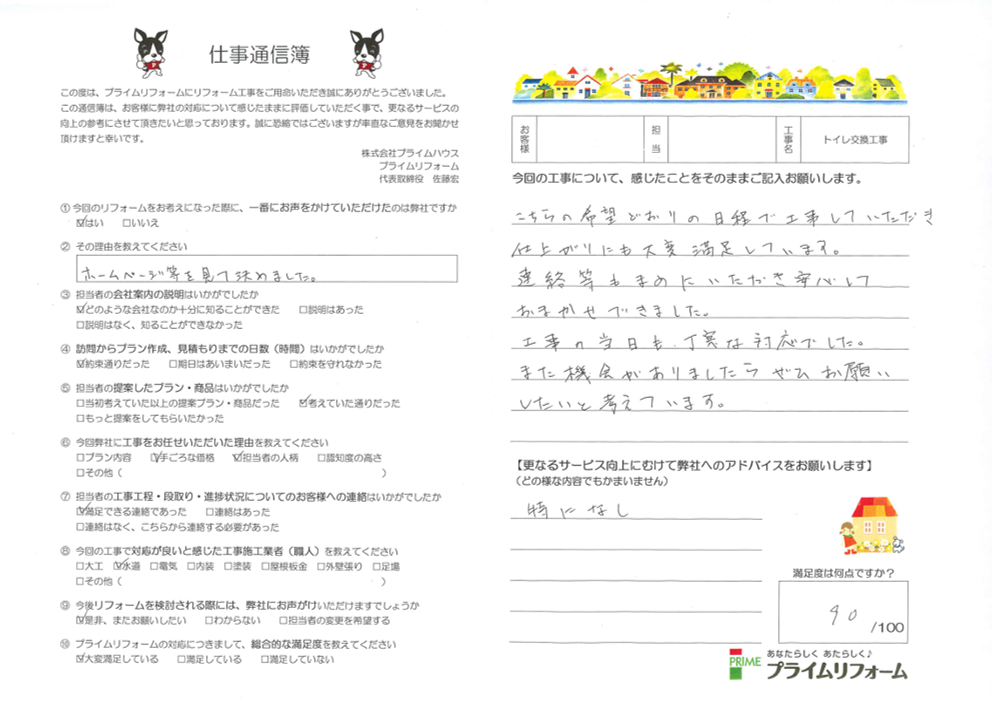 仕事通信簿
この度は、プライムリフォームにリフォーム工事をご用命いただき誠にありがとうございました。
この通信簿は、お客様に弊社の対応について感じたままに評価していただく事で、更なるサービスの
向上の参考にさせて頂きたいと思っております。誠に恐縮ではございますが率直なご意見をお聞かせ
頂けますと幸いです。
株式会社プライムハウス
プライムリフォーム
代表取締役 佐藤宏
① 今回のリフォームをお考えになった際に、一番にお声をかけていただけたのは弊社ですか
☑はい □いいえ
② その理由を教えてください
ホームページ等を見て決めました。
③ 担当者の会社案内の説明はいかがでしたか
☑どのような会社なのか十分に知ることができた □説明はあった
□説明はなく、知ることができなかった
④ 訪問からプラン作成、見積もりまでの日数（時間）はいかがでしたか
☑約束通りだった □期日はあいまいだった □約束を守れなかった
⑤ 担当者の提案したプラン・商品はいかがでしたか
□当初考えていた以上の提案プラン・商品だった ☑考えていた通りだった
□もっと提案をしてもらいたかった
⑥ 今回弊社に工事をお任せいただいた理由を教えてください
□プラン内容 ☑手ごろな価格 ☑担当者の人柄 □認知度の高さ
□その他（ ）
⑦ 担当者の工事工程・段取り・進捗状況についてのお客様への連絡はいかがでしたか
☑満足できる連絡であった □連絡はあった
□連絡はなく、こちらから連絡する必要があった
⑧ 今回の工事で対応が良いと感じた工事施工業者（職人）を教えてください
□大工 ☑水道 □電気 □内装 □塗装 □屋根板金 □外壁張り □足場
□その他（ ）
⑨ 今後リフォームを検討される際には、弊社にお声がけいただけますでしょうか
☑是非、またお願いしたい □わからない □担当者の変更を希望する
⑩ プライムリフォームの対応につきまして、総合的な満足度を教えてください
☑大変満足している □満足している □満足していない
お客様 担当 工事名 トイレ交換工事
今回の工事について、感じたことをそのままご記入お願いします。
こちらの希望どおりの日程で工事していただき
仕上がりにも大変満足しています。
連絡等もまめにいただき安心して
おまかせできました。
工事の当日も、丁寧な対応でした。
また機会がありましたらぜひお願い
したいと考えています。
【更なるサービス向上にむけて弊社へのアドバイスをお願いします】
（どの様な内容でもかまいません）
特になし
満足度は何点ですか？
90 /100
PRIME あなたらしく あたらしく♪
プライムリフォーム